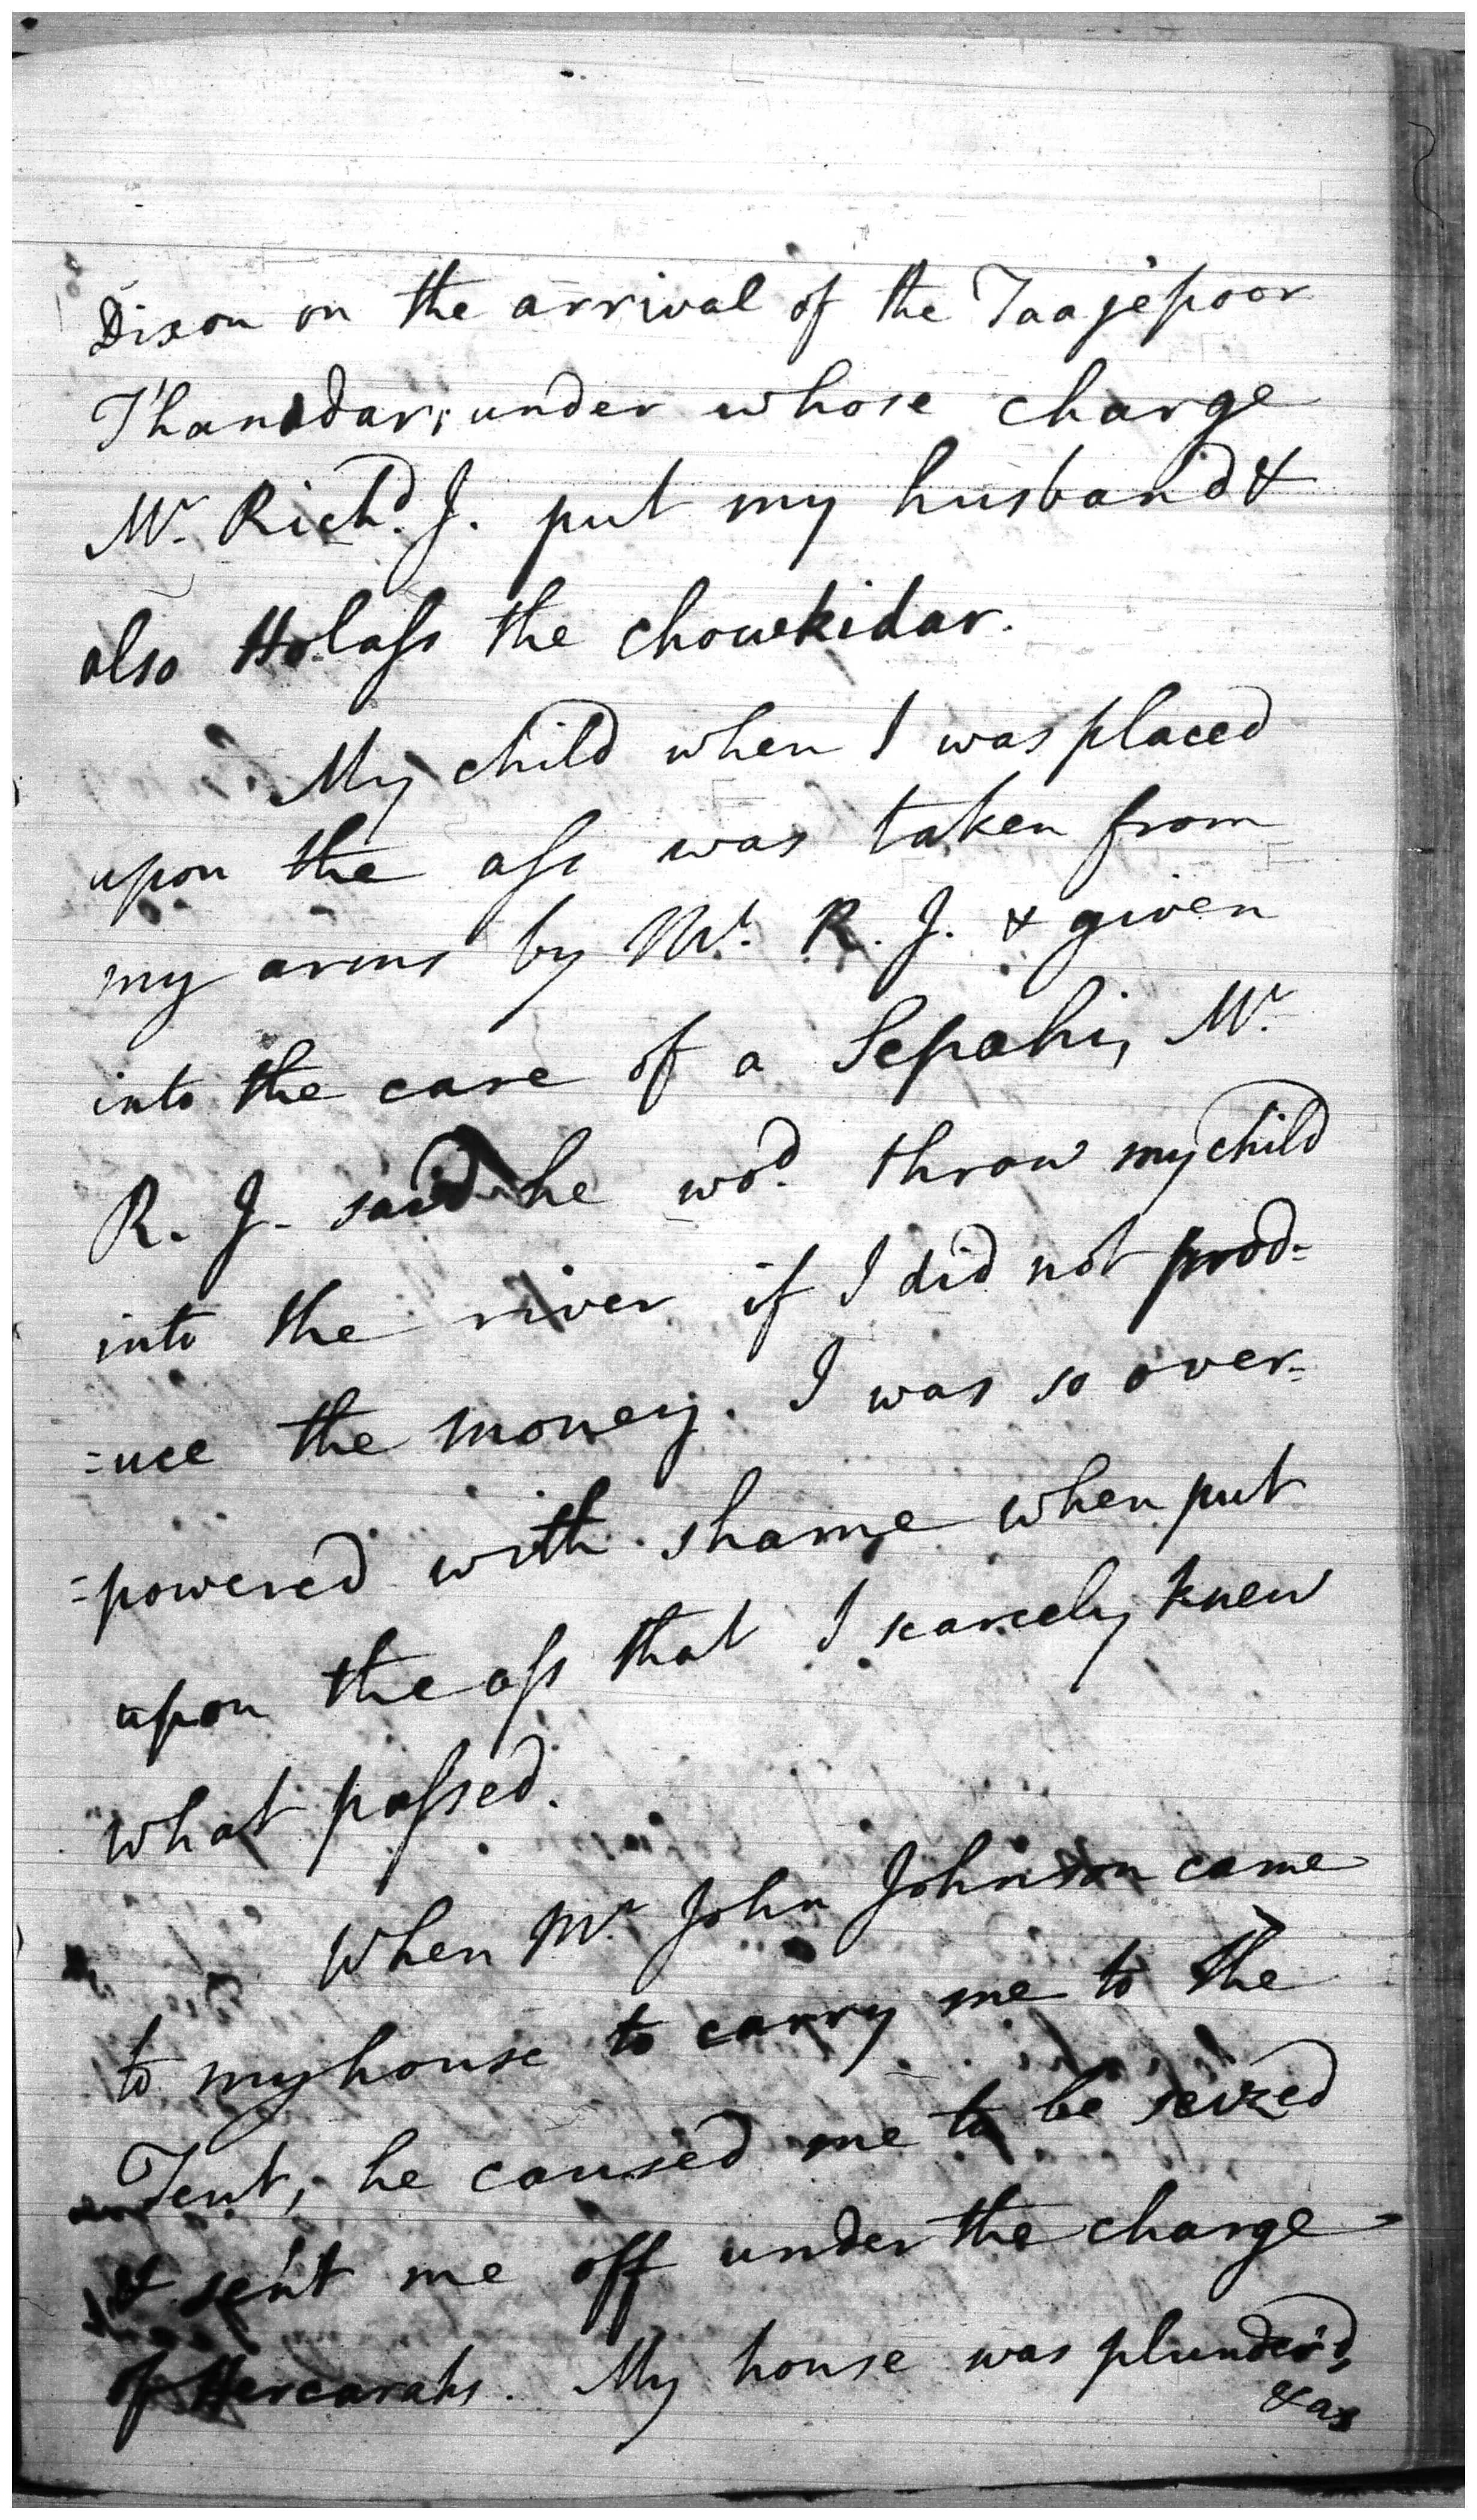 Dixon on the arrival of the Taajepoor
Thanadar, under whose charge
Mr. Richd. J. put my husband &
also Holass the chowkidar.
My child when I was placed
upon the ass was taken from
my arms by Mr. R. J. & given
into the care of a Sepahi, Mr.
R. J. said he wod. throw my child
into the river if I did not prod=
=uce the money. I was so over=
=powered with shame when put
upon the ass that I scarcely knew
what passed.
When Mr. John Johnson came
to my house to carry me to the
Tent, he caused me to be seized
& sent me off under the charge
of Hercarahs. My house was plunder'd,
& as